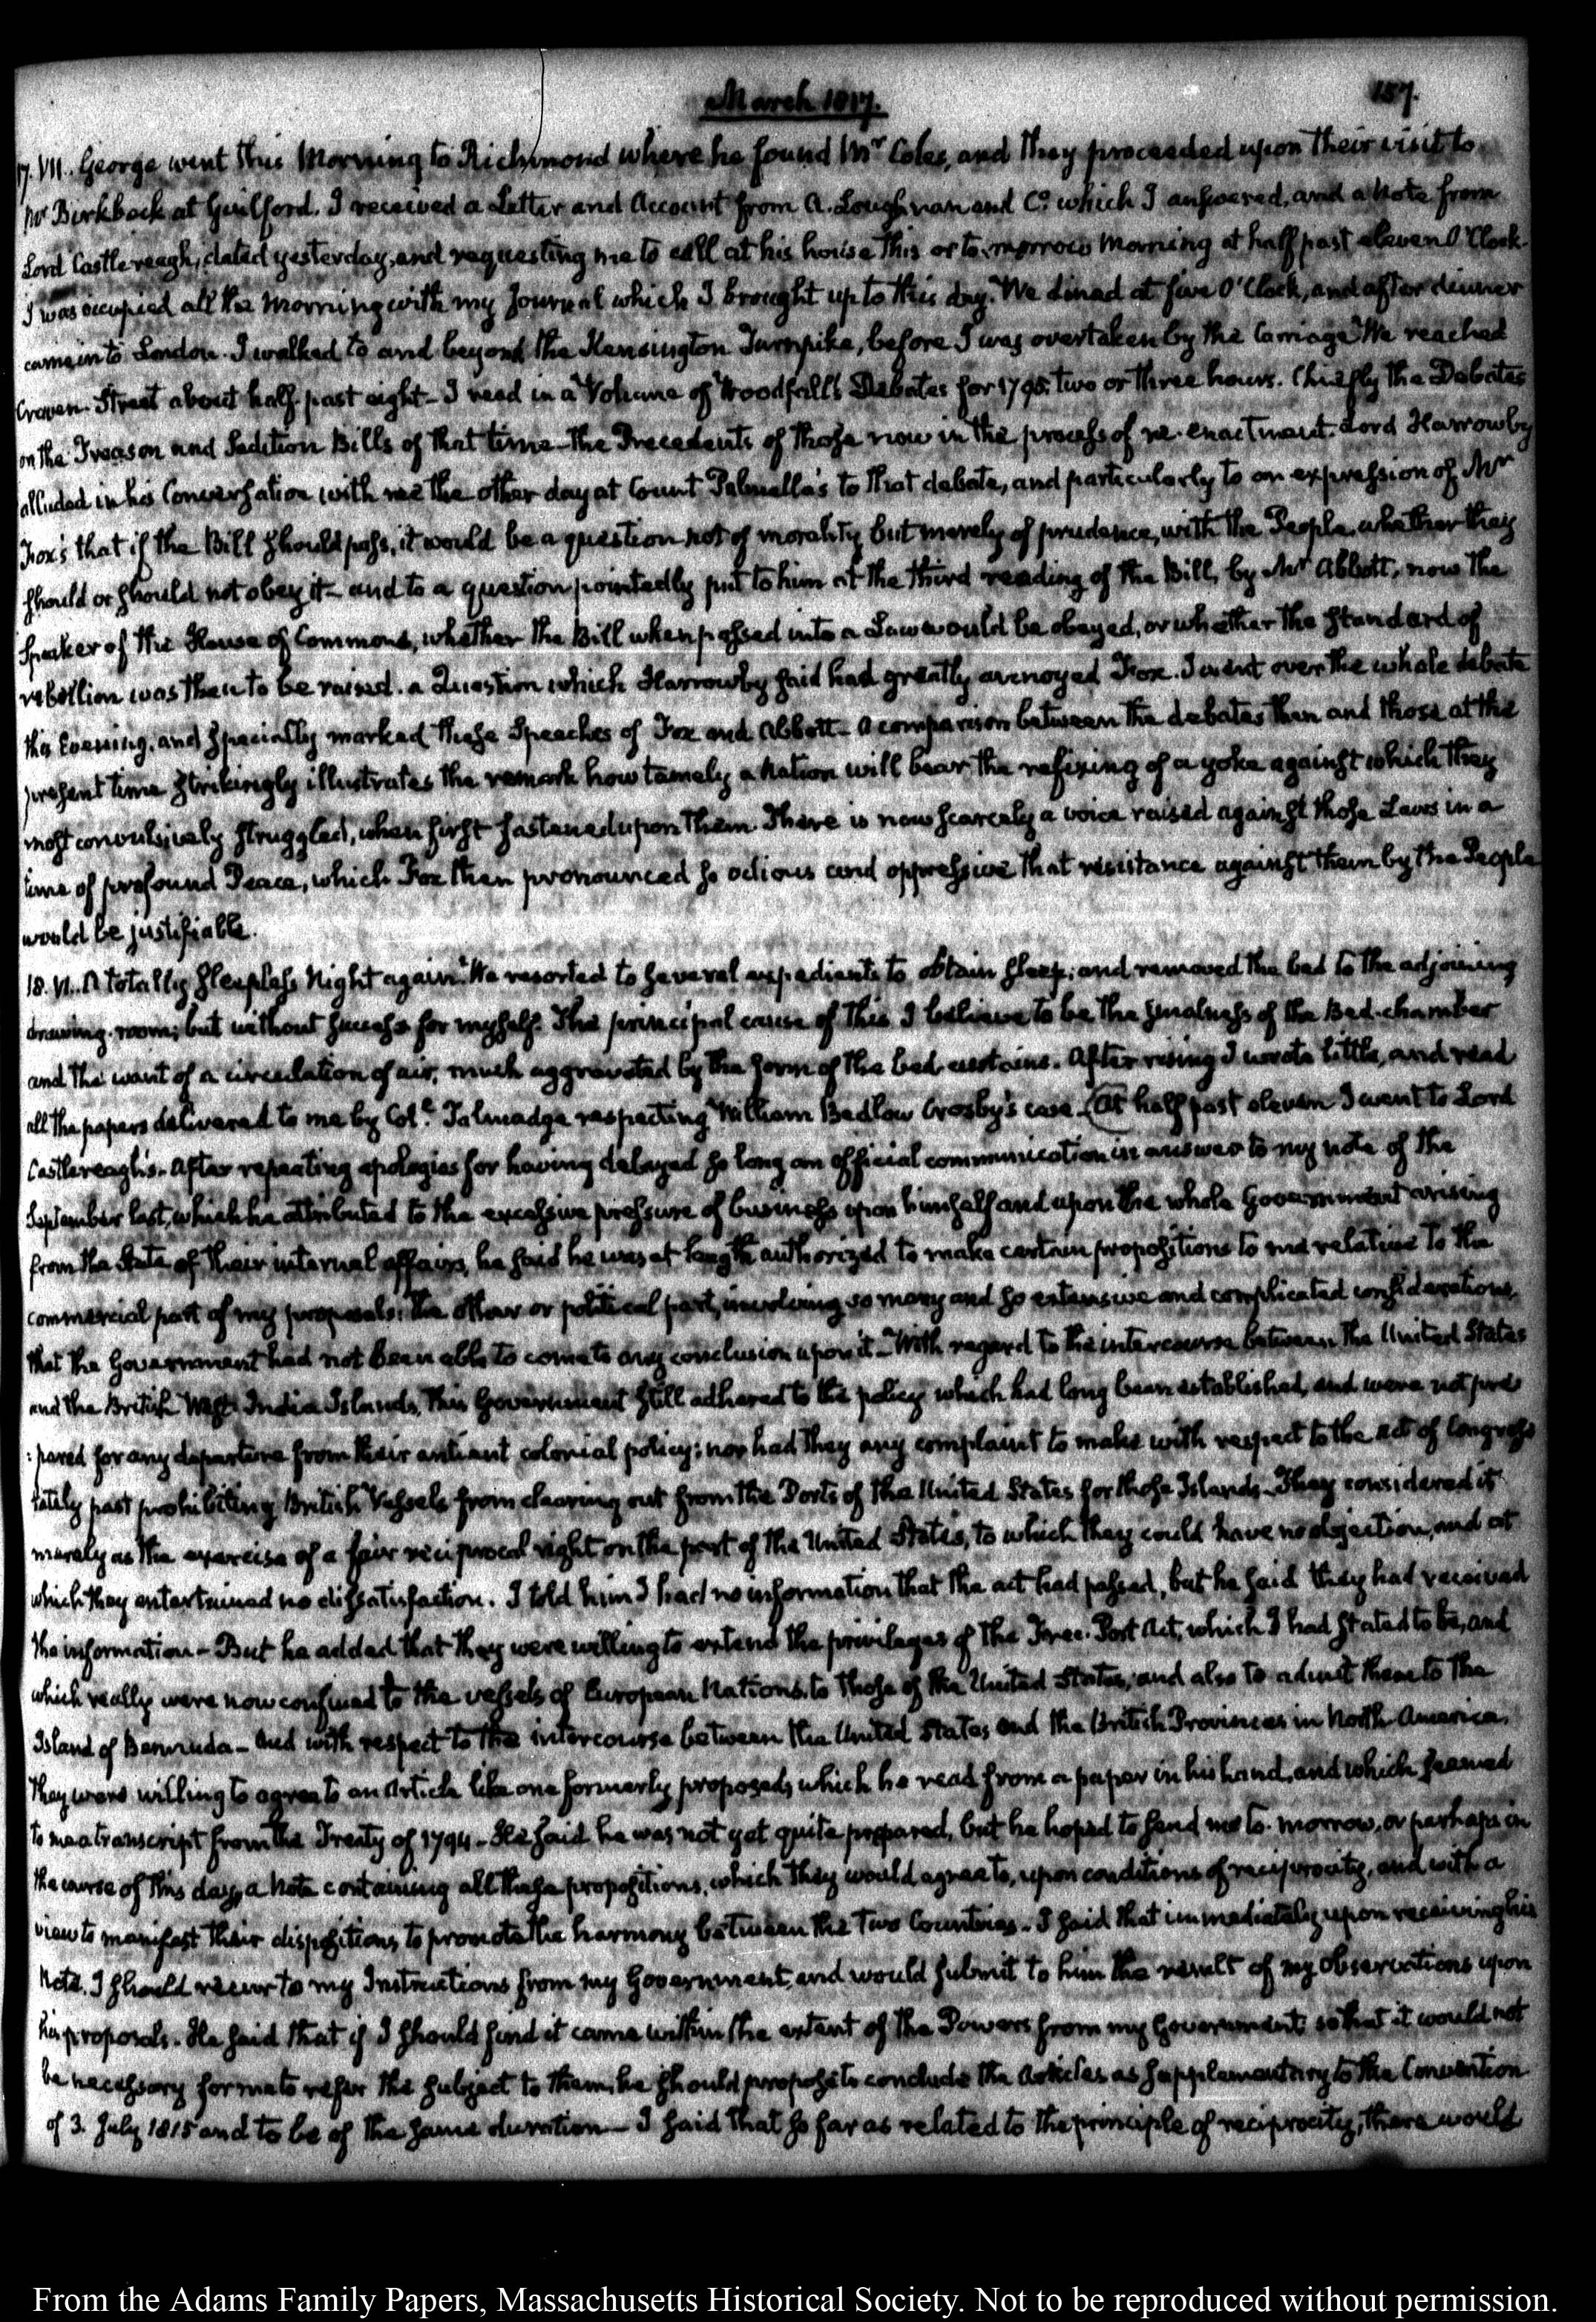 March 1817.
157.
17. VII. George went this Morning to Richmond where he found Mr Coles, and they proceeded upon their visit to
Mr Birkbeck at Guilford. I received a Letter and Account from A. Loughnan and Co. which I answered, and a Note from
Lord Castlereagh, dated yesterday, and requesting me to call at his house this or to-morrow Morning at half past eleven O'Clock.
I was occupied all the Morning with my Journal which I brought up to this day. We dined at five O'Clock, and after dinner
came into London. I walked to and beyond the Kensington Turnpike, before I was overtaken by the Carriage. We reached
Craven-Street about half past eight- I read in a Volume of Woodfall's Debates for 1795. two or three hours. Chiefly the Debates
on the Treason and Sedition Bills of that time- the Precedents of those now in the process of re-enactment. Lord Harrowby
alluded in his Conversation with me the other day at Count Palmella's to that debate, and particularly to an expression of Mr
Fox's that if the Bill should pass, it would be a question not of morality but merely of prudence, with the People, whether they
should or should not obey it- and to a question pointedly put to him at the third reading of the Bill, by Mr Abbott, now the
Speaker of the House of Commons, whether the Bill when passed into a Law would be obeyed, or whether the standard of
rebellion was then to be raised. a Question which Harrowby said had greatly annoyed Fox. I went over the whole debate
this Evening, and specially marked these Speeches of Fox and Abbott- A comparison between the debates then and those at the
present time strikingly illustrates the remark how tamely a Nation will bear the refixing of a yoke against which they
most convulsively struggled, when first fastened upon them. There is now scarcely a voice raised against those Laws in a
time of profound Peace, which Fox then pronounced so odious and oppressive that resistance against them by the People
would be justifiable.
18. VI. A totally sleepless Night again. We resorted to several expedients to obtain sleep; and removed the bed to the adjoining
drawing-room; but without success for myself. The principal cause of this I believe to be the smalness of the Bed-chamber
and the want of a circulation of air, much aggravated by the form of the bed-curtains. After rising I wrote little, and read
all the papers delivered to me by Coll. Talmadge respecting William Bedlow Crosby's case- At half past eleven I went to Lord
Castlereagh's- After repeating apologies for having delayed so long an official communication in answer to my note of the
September last, which he attributed to the excessive pressure of business upon himself and upon the whole Government arising
from the State of their internal affairs, he said he was at length authorized to make certain propositions to me relative to the
commercial part of my proposals: the other or political part, involving so many and so extensive and complicated considerations,
that the Government had not been able to come to any conclusion upon it- With regard to the intercourse between the United States
and the British West India Islands, this Government still adhered to the policy which had long been established, and were not pre
:pared for any departure from their antient colonial policy; nor had they any complaint to make with respect to the act of Congress
lately past prohibiting British Vessels from clearing out from the Ports of the United States for those Islands- They considered it
merely as the exercise of a fair reciprocal right on the part of the United States, to which they could have no objection, and at
which they entertained no dissatisfaction. I told him I had no information that the act had passed, but he said they had received
the information- But he added that they were willing to extend the privileges of the Free-Port Act, which I had stated to be, and
which really were now confined to the vessels of European Nations, to those of the United States; and also to admit them to the
Island of Bermuda- And with respect to the intercourse between the United States and the British Provinces in North-America,
they were willing to agree to an Article like one formerly proposed, which he read from a paper in his hand, and which seemed
to me a transcript from the Treaty of 1794- He said he was not yet quite prepared, but he hoped to send me to-morrow, or perhaps in
the course of this day, a Note containing all these propositions, which they would agree to, upon conditions of reciprocity, and with a
view to manifest their dispositions to promote the harmony between the two Countries- I said that immediately upon receiving his
Note, I should recur to my Instructions from my Government, and would submit to him the result of my observations upon
his proposals. He said that if I should find it came within the extent of the Powers from my Government so that it would not
be necessary for me to refer the subject to them, he should propose to conclude the Articles as supplementary to the Convention
of 3. July 1815 and to be of the same duration- I said that so far as related to the principle of reciprocity, there would
From the Adams Family Papers, Massachusetts Historical Society. Not to be reproduced without permission.